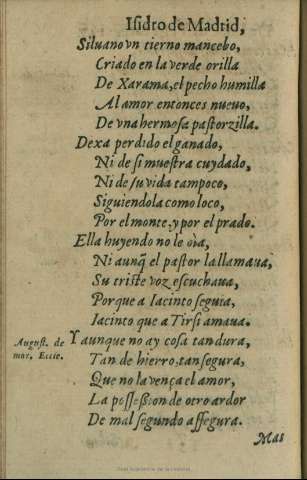 Isidro de Madrid,
Siluano vn tierno mancebo,
Criado en la verde orilla
De Xarama, el pecho humilla
Al amor entonces nueuo,
De vna hermosa pastorzilla.
Dexa perdido el ganado,
Ni de si muestra cuydado,
Ni de su vida tampoco,
Siguiendola como loco,
Por el monte, y por el prado.
Ella huyendo no le oìa,
Ni aunq̃ el pastor la llamaua,
Su triste voz escuchaua,
Porque a Iacinto seguia,
Iacinto que a Tirsi amaua.
August. de
mor, Eccie.
Y aunque no ay cosa tan dura,
Tan de hierro, tan segura,
Que no la vença el amor,
La possession de otro ardor
De mal segundo assegura.
Mas